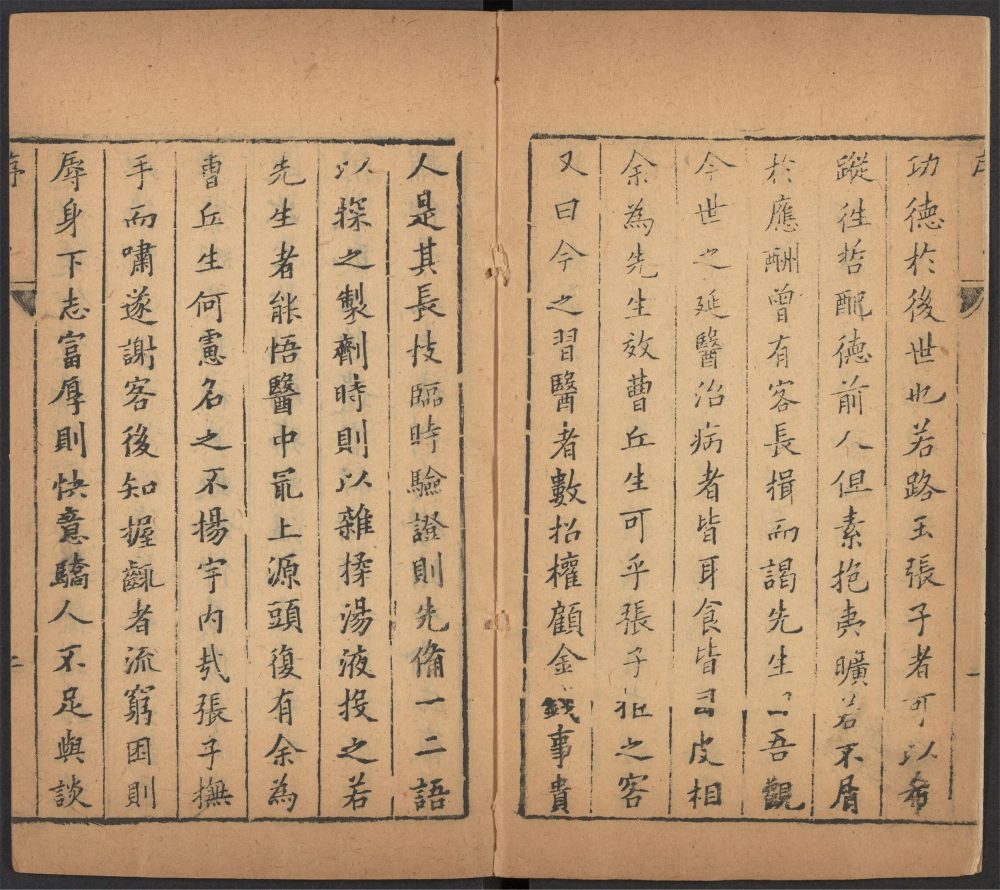 功德於後世也若路玉張子者可以希
蹤徃哲配德前人但素抱夷曠若不屑
於應酬曾有客長揖而謁先生曰吾觀
今世之延醫治病者皆耳食皆目皮相
余為先生效曹丘生可乎張子拒之客
又曰今之習醫者數招權顧金錢事貴
人是其長技臨時驗證則先備一二語
以探之製劑時則以雜揉湯液投之若
先生者能悟醫中冣上源頭復有余為
曹丘生何慮名之不揚宇内㢤張子撫
手而嘯遂謝客後知握齱者流窮困則
辱身下志富厚則快意驕人不足與談
序